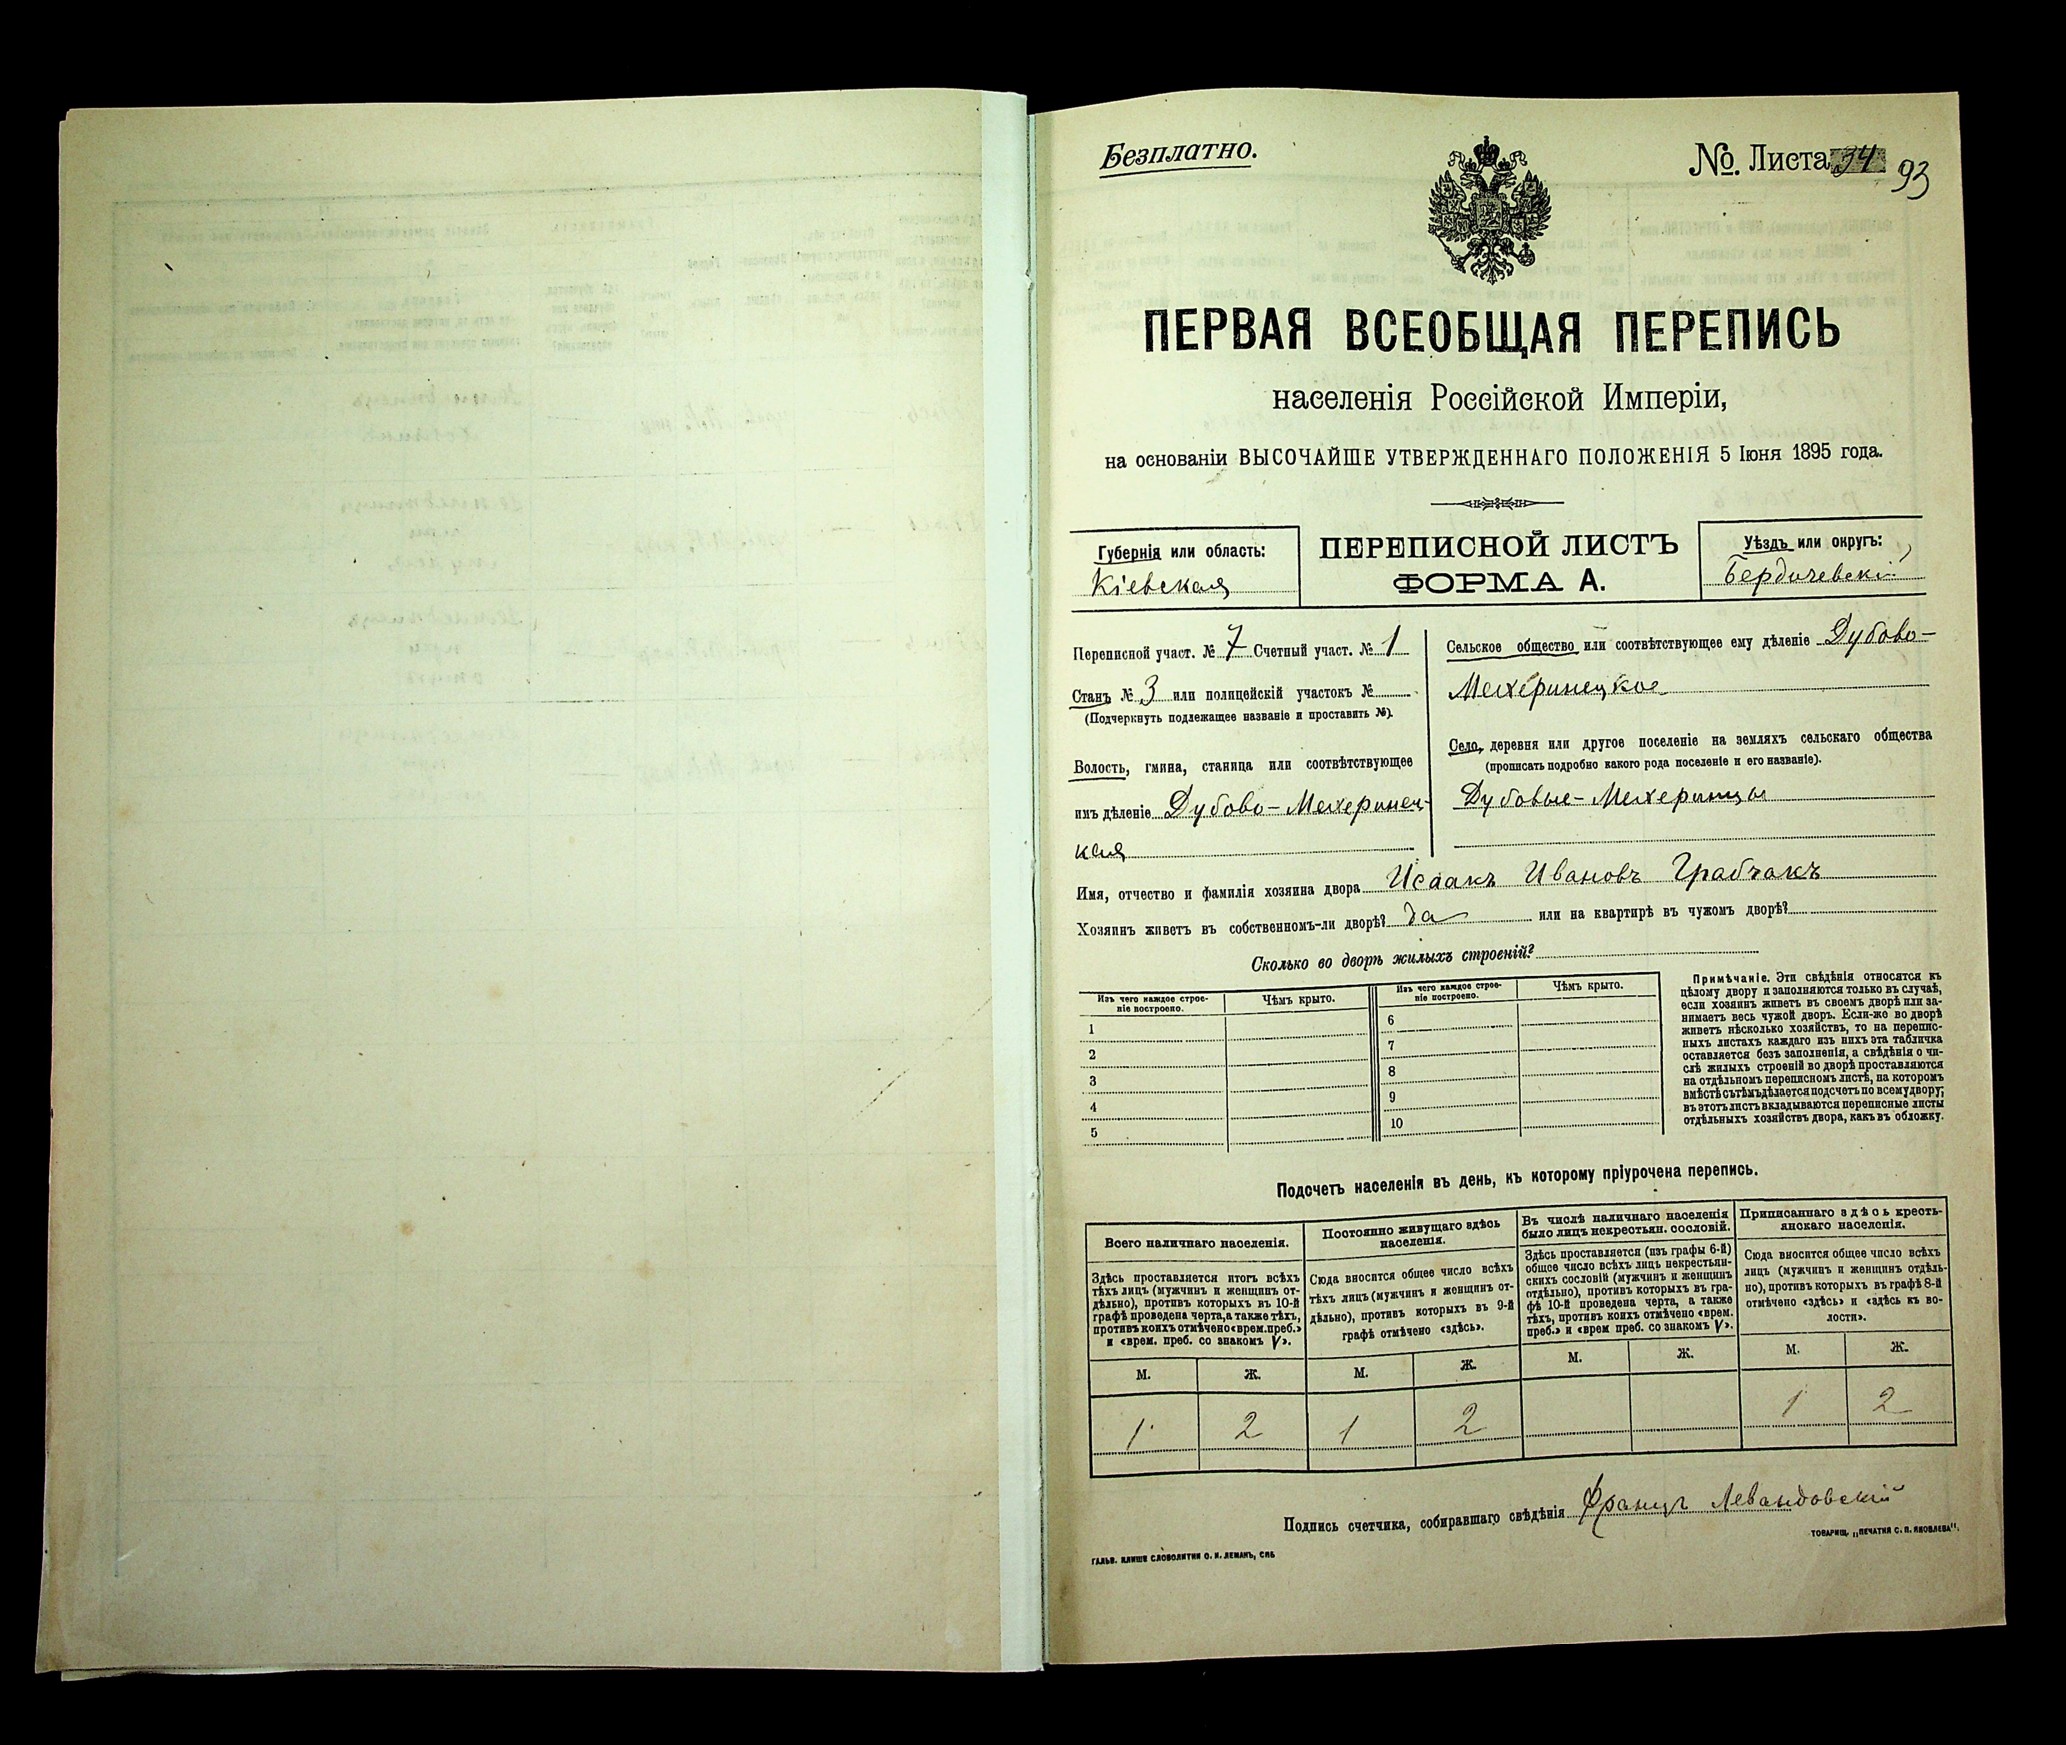 Безплатно.
№. Листа 34 93
ПЕРВАЯ ВСЕОБЩАЯ ПЕРЕПИСЬ
населенія Россійской Имперіи,
на основаніи ВЫСОЧАЙШЕ УТВЕРЖДЕННАГО ПОЛОЖЕНІЯ 5 Іюня 1895 года.
Губернія или область:
Кіевская
ПЕРЕПИСНОЙ ЛИСТЪ
ФОРМА А.
Уѣздъ или округъ:
Бердичевскій
Переписной участ. № 7 Счетный участ. № 1
Станъ № 3 или полицейскій участокъ №
(Подчеркнуть подлежащее названіе и проставить №).
Волость, гмина, станица или соотвѣтствующее
имъ дѣленіе Дубово-Мехеринец-
кая
Сельское общество или соотвѣтствующее ему дѣленіе Дубово-
Мехеринецкое
Село, деревня или другое поселеніе на земляхъ сельскаго общества
(прописать подробно какого рода поселеніе и его названіе).
Дубовые-Мехеринцы
Имя, отчество и фамилія хозяина двора Исаакъ Ивановъ Грабчакъ
Хозяинъ живетъ въ собственномъ-ли дворѣ? да или на квартирѣ въ чужомъ дворѣ?
Сколько во дворѣ жилыхъ строеній?
Изъ чего каждое строе-
ніе построено.
Чѣмъ крыто.
Изъ чего каждое строе-
ніе построено.
Чѣмъ крыто.
1
2
3
4
5
6
7
8
9
10
Примѣчаніе. Эти свѣдѣнія относятся къ
цѣлому двору и заполняются только въ случаѣ,
если хозяинъ живетъ въ своемъ дворѣ или за-
нимаетъ весь чужой дворъ. Если-же во дворѣ
живетъ нѣсколько хозяйствъ, то на перепис-
ныхъ листахъ каждаго изъ нихъ эта табличка
оставляется безъ заполненія, а свѣдѣнія о чи-
слѣ жилыхъ строеній во дворѣ проставляются
на отдѣльномъ переписномъ листѣ, на которомъ
вмѣстѣ съ тѣмъ дѣлается подсчетъ по всему двору;
въ этотъ листъ вкладываются переписные листы
отдѣльныхъ хозяйствъ двора, какъ въ обложку.
Подсчетъ населенія въ день, къ которому пріурочена перепись.
Всего наличнаго населенія.
Здѣсь проставляется итогъ всѣхъ
тѣхъ лицъ (мужчинъ и женщинъ от-
дѣльно), противъ которыхъ въ 10-й
графѣ проведена черта, а также тѣхъ,
противъ коихъ отмѣчено «врем. преб.»
и «врем. преб. со знакомъ V».
М. Ж.
1 2
Постоянно живущаго здѣсь
населенія.
Сюда вносится общее число всѣхъ
тѣхъ лицъ (мужчинъ и женщинъ от-
дѣльно), противъ которыхъ въ 9-й
графѣ отмѣчено «здѣсь».
М. Ж.
1 2
Въ числѣ наличнаго населенія
было лицъ некрестьян. сословій.
Здѣсь проставляется (изъ графы 6-й)
общее число всѣхъ лицъ некрестьян-
скихъ сословій (мужчинъ и женщинъ
отдѣльно), противъ которыхъ въ гра-
фѣ 10-й проведена черта, а также
тѣхъ, противъ коихъ отмѣчено «врем.
преб.» и «врем преб. со знакомъ V».
М. Ж.
Приписаннаго здѣсь кресть-
янскаго населенія.
Сюда вносится общее число всѣхъ
лицъ (мужчинъ и женщинъ отдѣль-
но), противъ которыхъ въ графѣ 8-й
отмѣчено «здѣсь» и «здѣсь къ во-
лости».
М. Ж.
1 2
Подпись счетчика, собиравшаго свѣдѣнія Францъ Левандовскій
ГАЛЬВ. КЛИШЕ СЛОВОЛИТНИ О. И. ЛЕМАНЪ, СПБ
ТОВАРИЩ. „ПЕЧАТНЯ С. П. ЯКОВЛЕВА".